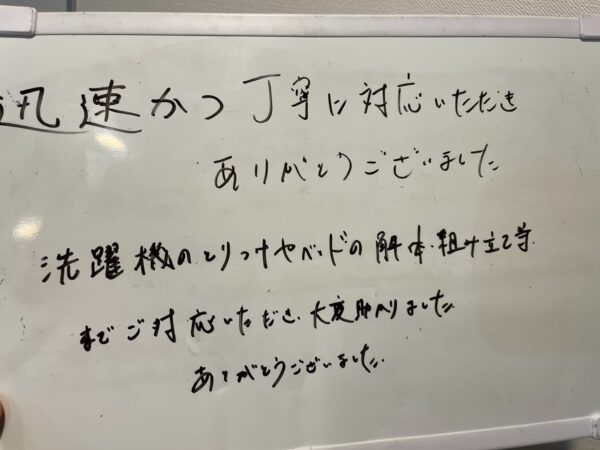 迅速かつ丁寧に対応いただき
ありがとうございました
洗濯機のとりつけやベッドの解体・組み立て等
までご対応いただき、大変助かりました
ありがとうございました